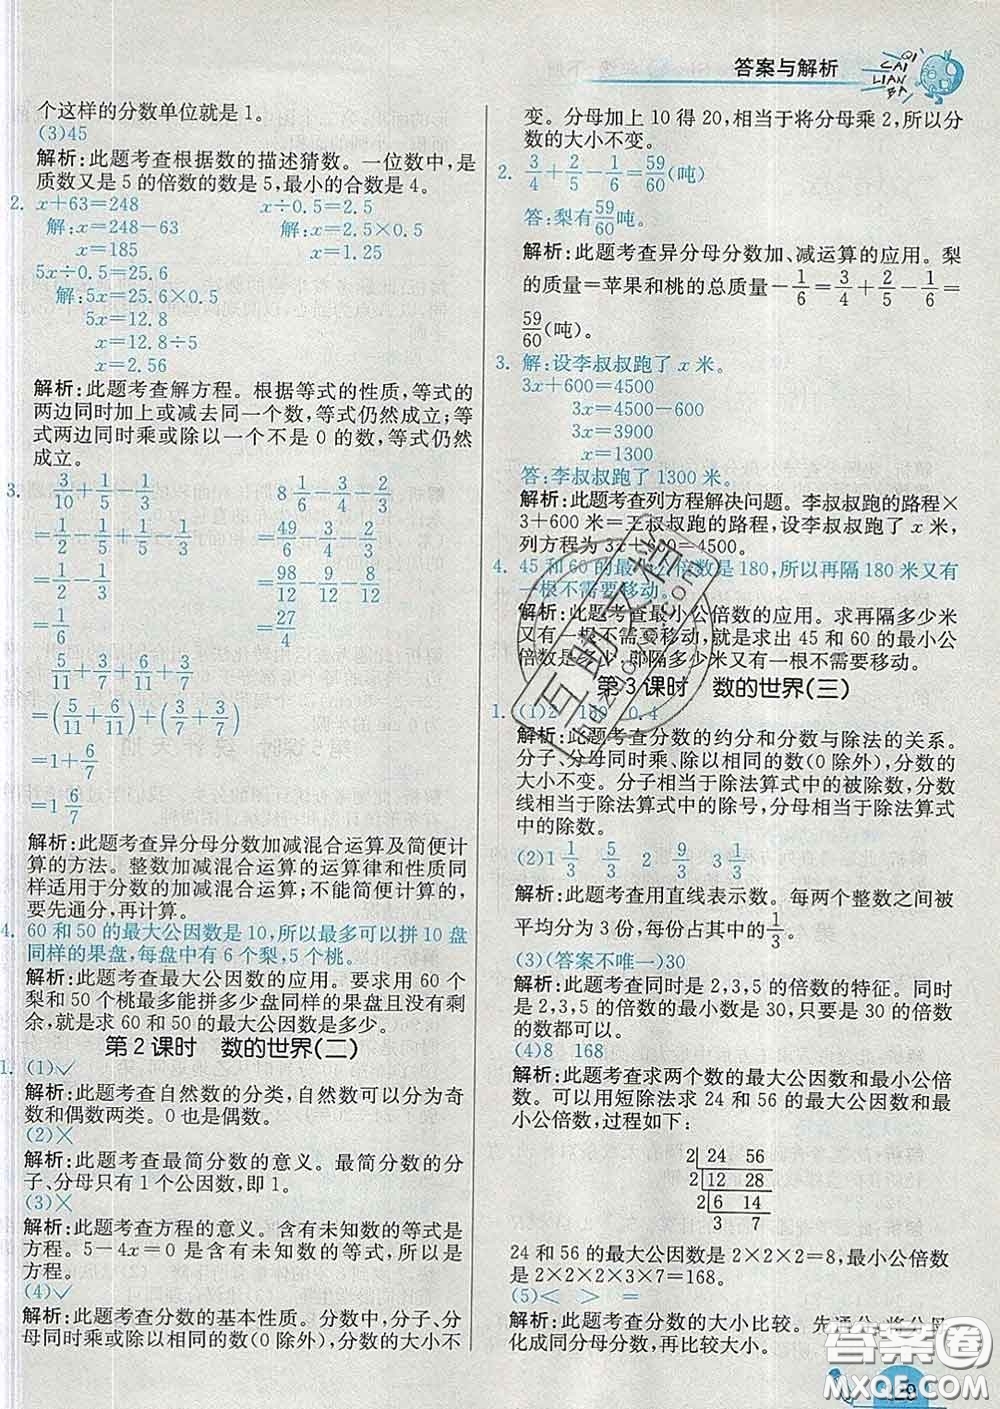 答案与解析
QI CAI LIAN BA
个这样的分数单位就是1。
(3)45
解析:此题考查根据数的描述猜数。一位数中,是
质数又是5的倍数的数是5,最小的合数是4。
2. x+63=248 x÷0.5=2.5
解:x=248-63 解:x=2.5×0.5
x=185 x=1.25
5x÷0.5=25.6
解:5x=25.6×0.5
5x=12.8
x=12.8÷5
x=2.56
解析:此题考查解方程。根据等式的性质,等式的
两边同时加上或减去同一个数,等式仍然成立;等
式两边同时乘或除以一个不是0的数,等式仍然
成立。
3. 3/10+1/5-1/3 8 1/6-2/3-3/4
=1/2-1/5+1/5-1/3 =49/6-2/3-3/4
=1/2-1/3 =98/12-8/12-9/12
=1/6 =27/4
5/11+3/7+6/11+3/7
=(5/11+6/11)+(3/7+3/7)
=1+6/7
=1 6/7
解析:此题考查异分母分数加减混合运算及简便计
算的方法。整数加减混合运算的运算律和性质同
样适用于分数的加减混合运算;不能简便计算的,
要先通分,再计算。
4. 60和50的最大公因数是10,所以最多可以拼10盘
同样的果盘,每盘中有6个梨,5个桃。
解析:此题考查最大公因数的应用。要求用60个
梨和50个桃最多能拼多少盘同样的果盘且没有剩
余,就是求60和50的最大公因数是多少。
第2课时 数的世界(二)
1. (1)✓
解析:此题考查自然数的分类,自然数可以分为奇
数和偶数两类。0也是偶数。
(2)×
解析:此题考查最简分数的意义。最简分数的分
子、分母只有1个公因数,即1。
(3)×
解析:此题考查方程的意义。含有未知数的等式是
方程。5-4x=0是含有未知数的等式,所以是
方程。
(4)✓
解析:此题考查分数的基本性质。分数中,分子、分
母同时乘或除以相同的数(0除外),分数的大小不
变。分母加上10得20,相当于将分母乘2,所以分
数的大小不变。
2. 3/4+2/5-1/6=59/60(吨)
答:梨有59/60吨。
解析:此题考查异分母分数加、减运算的应用。梨
的质量=苹果和桃的总质量-1/6=3/4+2/5-1/6=
59/60(吨)。
3. 解:设李叔叔跑了x米。
3x+600=4500
3x=4500-600
3x=3900
x=1300
答:李叔叔跑了1300米。
解析:此题考查列方程解决问题。李叔叔跑的路程×
3+600米=王叔叔跑的路程,设李叔叔跑了x米,
列方程为3x+600=4500。
4. 45和60的最小公倍数是180,所以再隔180米又有
一根不需要移动。
解析:此题考查最小公倍数的应用。求再隔多少米
又有一根不需要移动,就是求出45和60的最小公
倍数是多少,即隔多少米又有一根不需要移动。
第3课时 数的世界(三)
1. (1)2 180 0.4
解析:此题考查分数的约分和分数与除法的关系。
分子、分母同时乘、除以相同的数(0除外),分数
的大小不变。分子相当于除法算式中的被除数,分数
线相当于除法算式中的除号,分母相当于除法算式
中的除数。
(2)1 1/3 5/3 2 9/3 3 1/3
解析:此题考查用直线表示数。每两个整数之间被
平均分为3份,每份占其中的1/3。
(3)(答案不唯一)30
解析:此题考查同时是2,3,5的倍数的特征。同时
是2,3,5的倍数的最小数是30,只要是30的倍数
的数都可以。
(4)8 168
解析:此题考查求两个数的最大公因数和最小公倍
数。可以用短除法求24和56的最大公因数和最
小公倍数,过程如下:
2 24 56
2 12 28
2 6 14
3 7
24和56的最大公因数是2×2×2=8,最小公倍数
是2×2×2×3×7=168。
(5)< > =
解析:此题考查分数的大小比较。先通分,将分母
化成同分母分数,再比较大小。
互助文档
huzhuwendang.com
答案圈
MXQE.COM